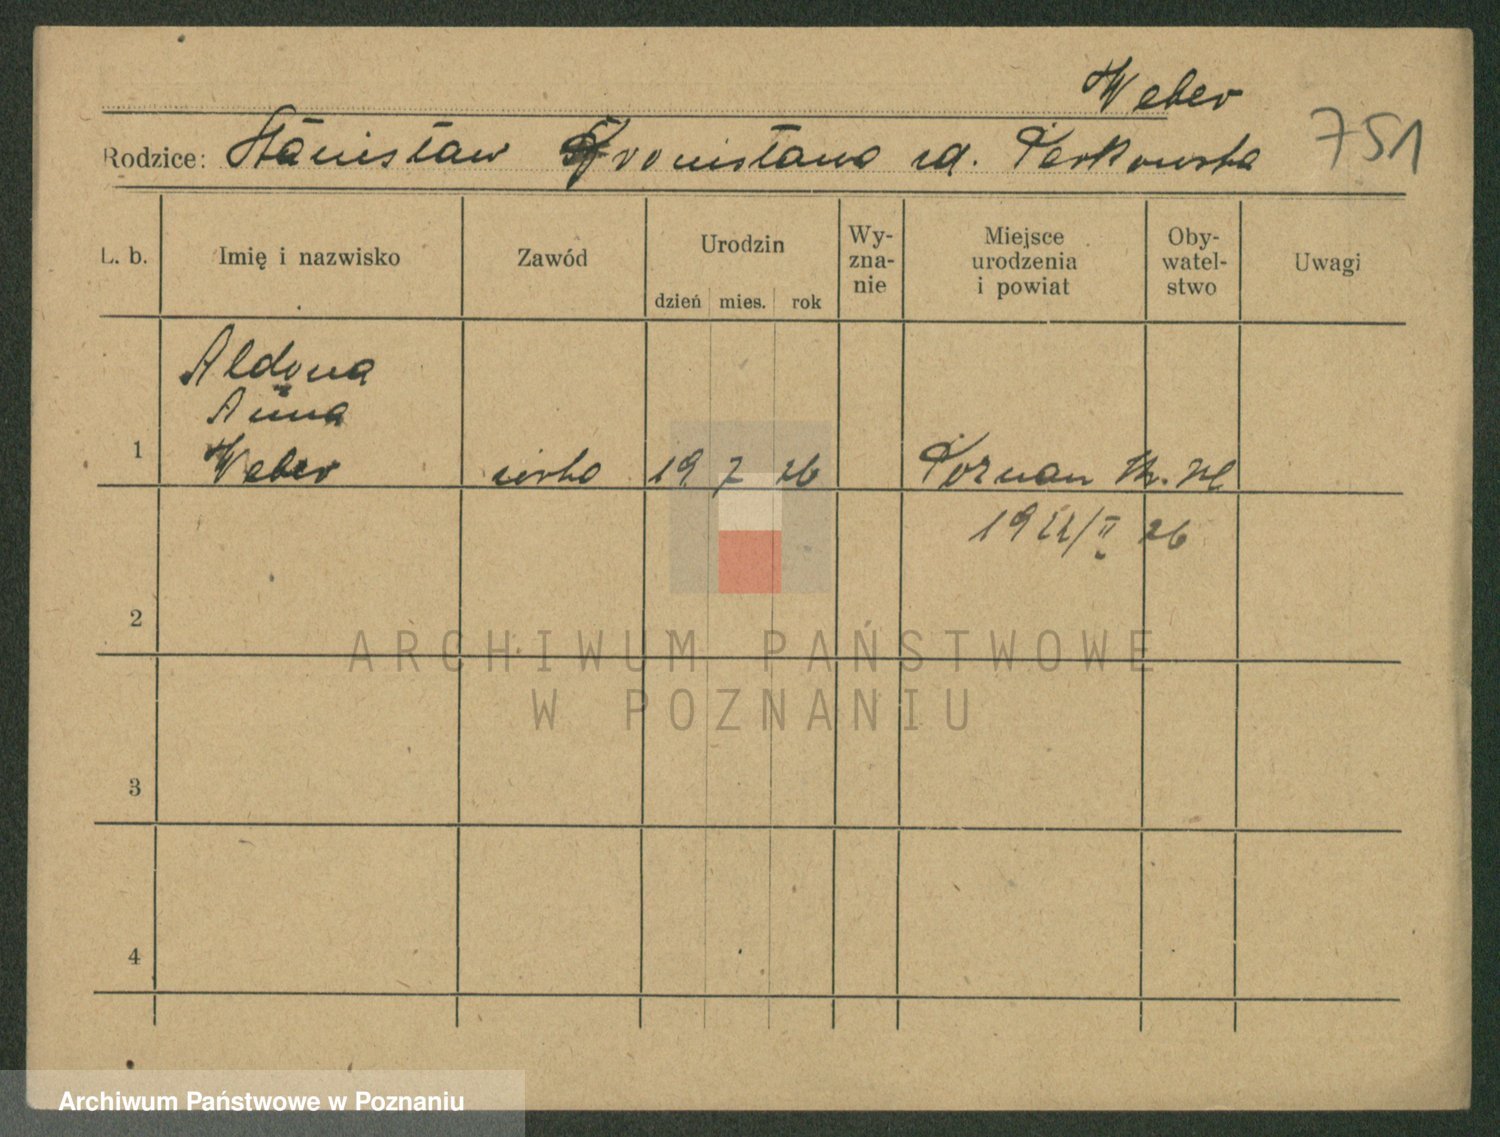 Weber
751
Rodzice: Stanisław Bronisława zd. Perkowska
L. b. Imię i nazwisko Zawód Urodzin Wy-zna-nie Miejsce urodzenia i powiat Oby-watel-stwo Uwagi
dzień mies. rok
Aldona
Anna
1 Weber córka 19 7 26 Poznań
26
2
3
4
ARCHIWUM PAŃSTWOWE
W POZNANIU
Archiwum Państwowe w Poznaniu